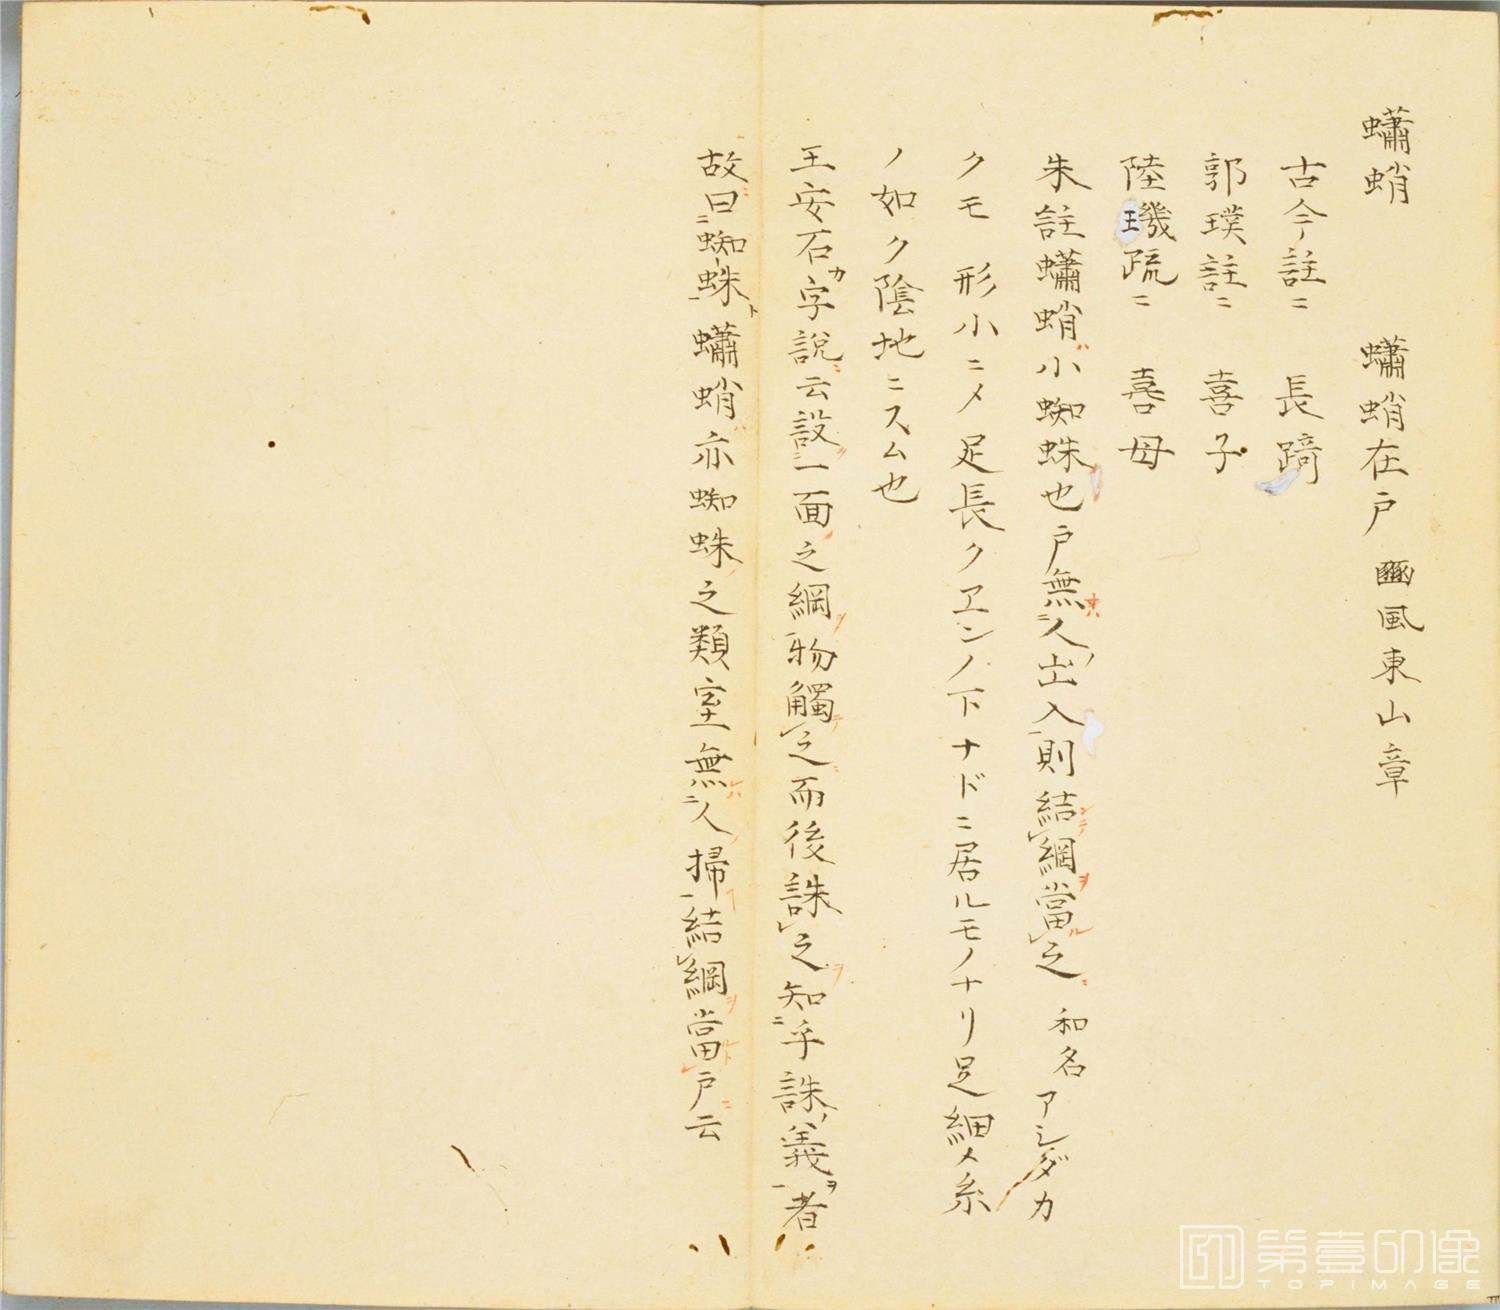 蠨蛸　蠨蛸在戸 豳風東山章
古今註ニ　長踦
郭璞註ニ　喜子
陸璣疏ニ　喜母
朱註蠨蛸ハ小蜘蛛也戸無人出入則結網當之 和名 アシダカ
クモ 形小ニメ足長クヱンノ下ナドニ居ルモノナリ足細メ糸
ノ如ク陰地ニスム也
王安石カ字説ニ云設一面之網物觸之而後誅之知乎誅義者
故曰蜘蛛ト蠨蛸亦蜘蛛之類室無人掃結網當戸云
第壹印像
TOPIMAGE